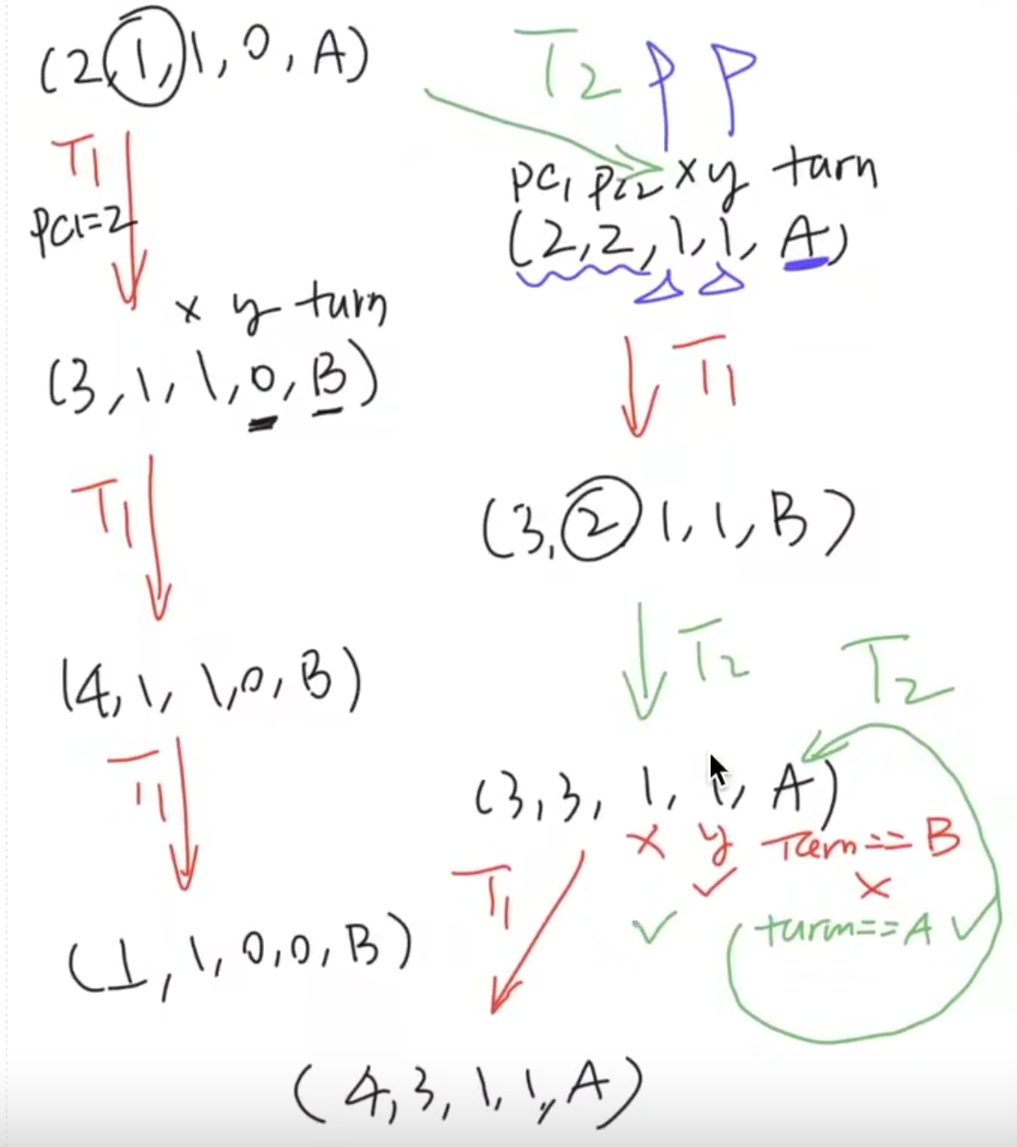 (2, 1, 1, 0, A)
T1
PC1=2
x y turn
(3, 1, 1, 0, B)
T1
(4, 1, 1, 0, B)
T1
(1, 1, 0, 0, B)
T2 P P
PC1 PC2 x y turn
(2, 2, 1, 1, A)
T1
(3, 2 1, 1, B)
T2
T2
(3, 3, 1, 1, A)
x y Turn == B
T1 ✓ x
✓ (turn == A ✓
(4, 3, 1, 1, A)